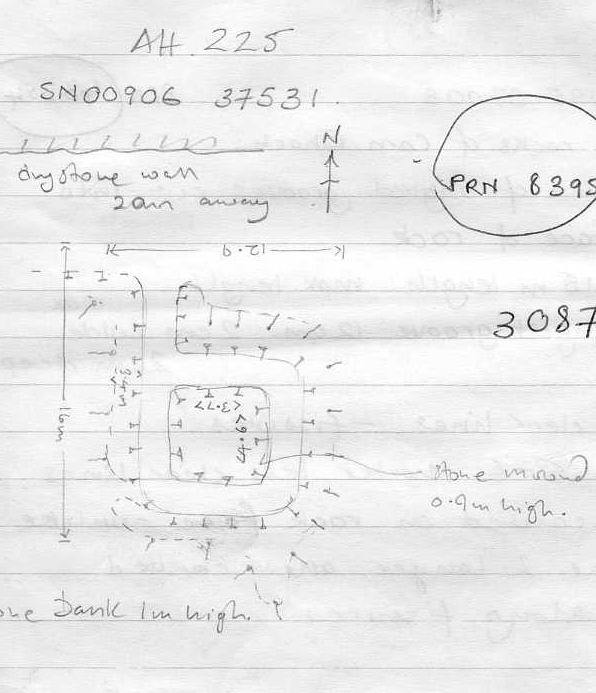 AH 225
SN00906 37531
N
drystone wall
20m away
PRN 8395
12.9
3087
16m
<3.77>
stone mound
0.9m high.
Bank 1m high.